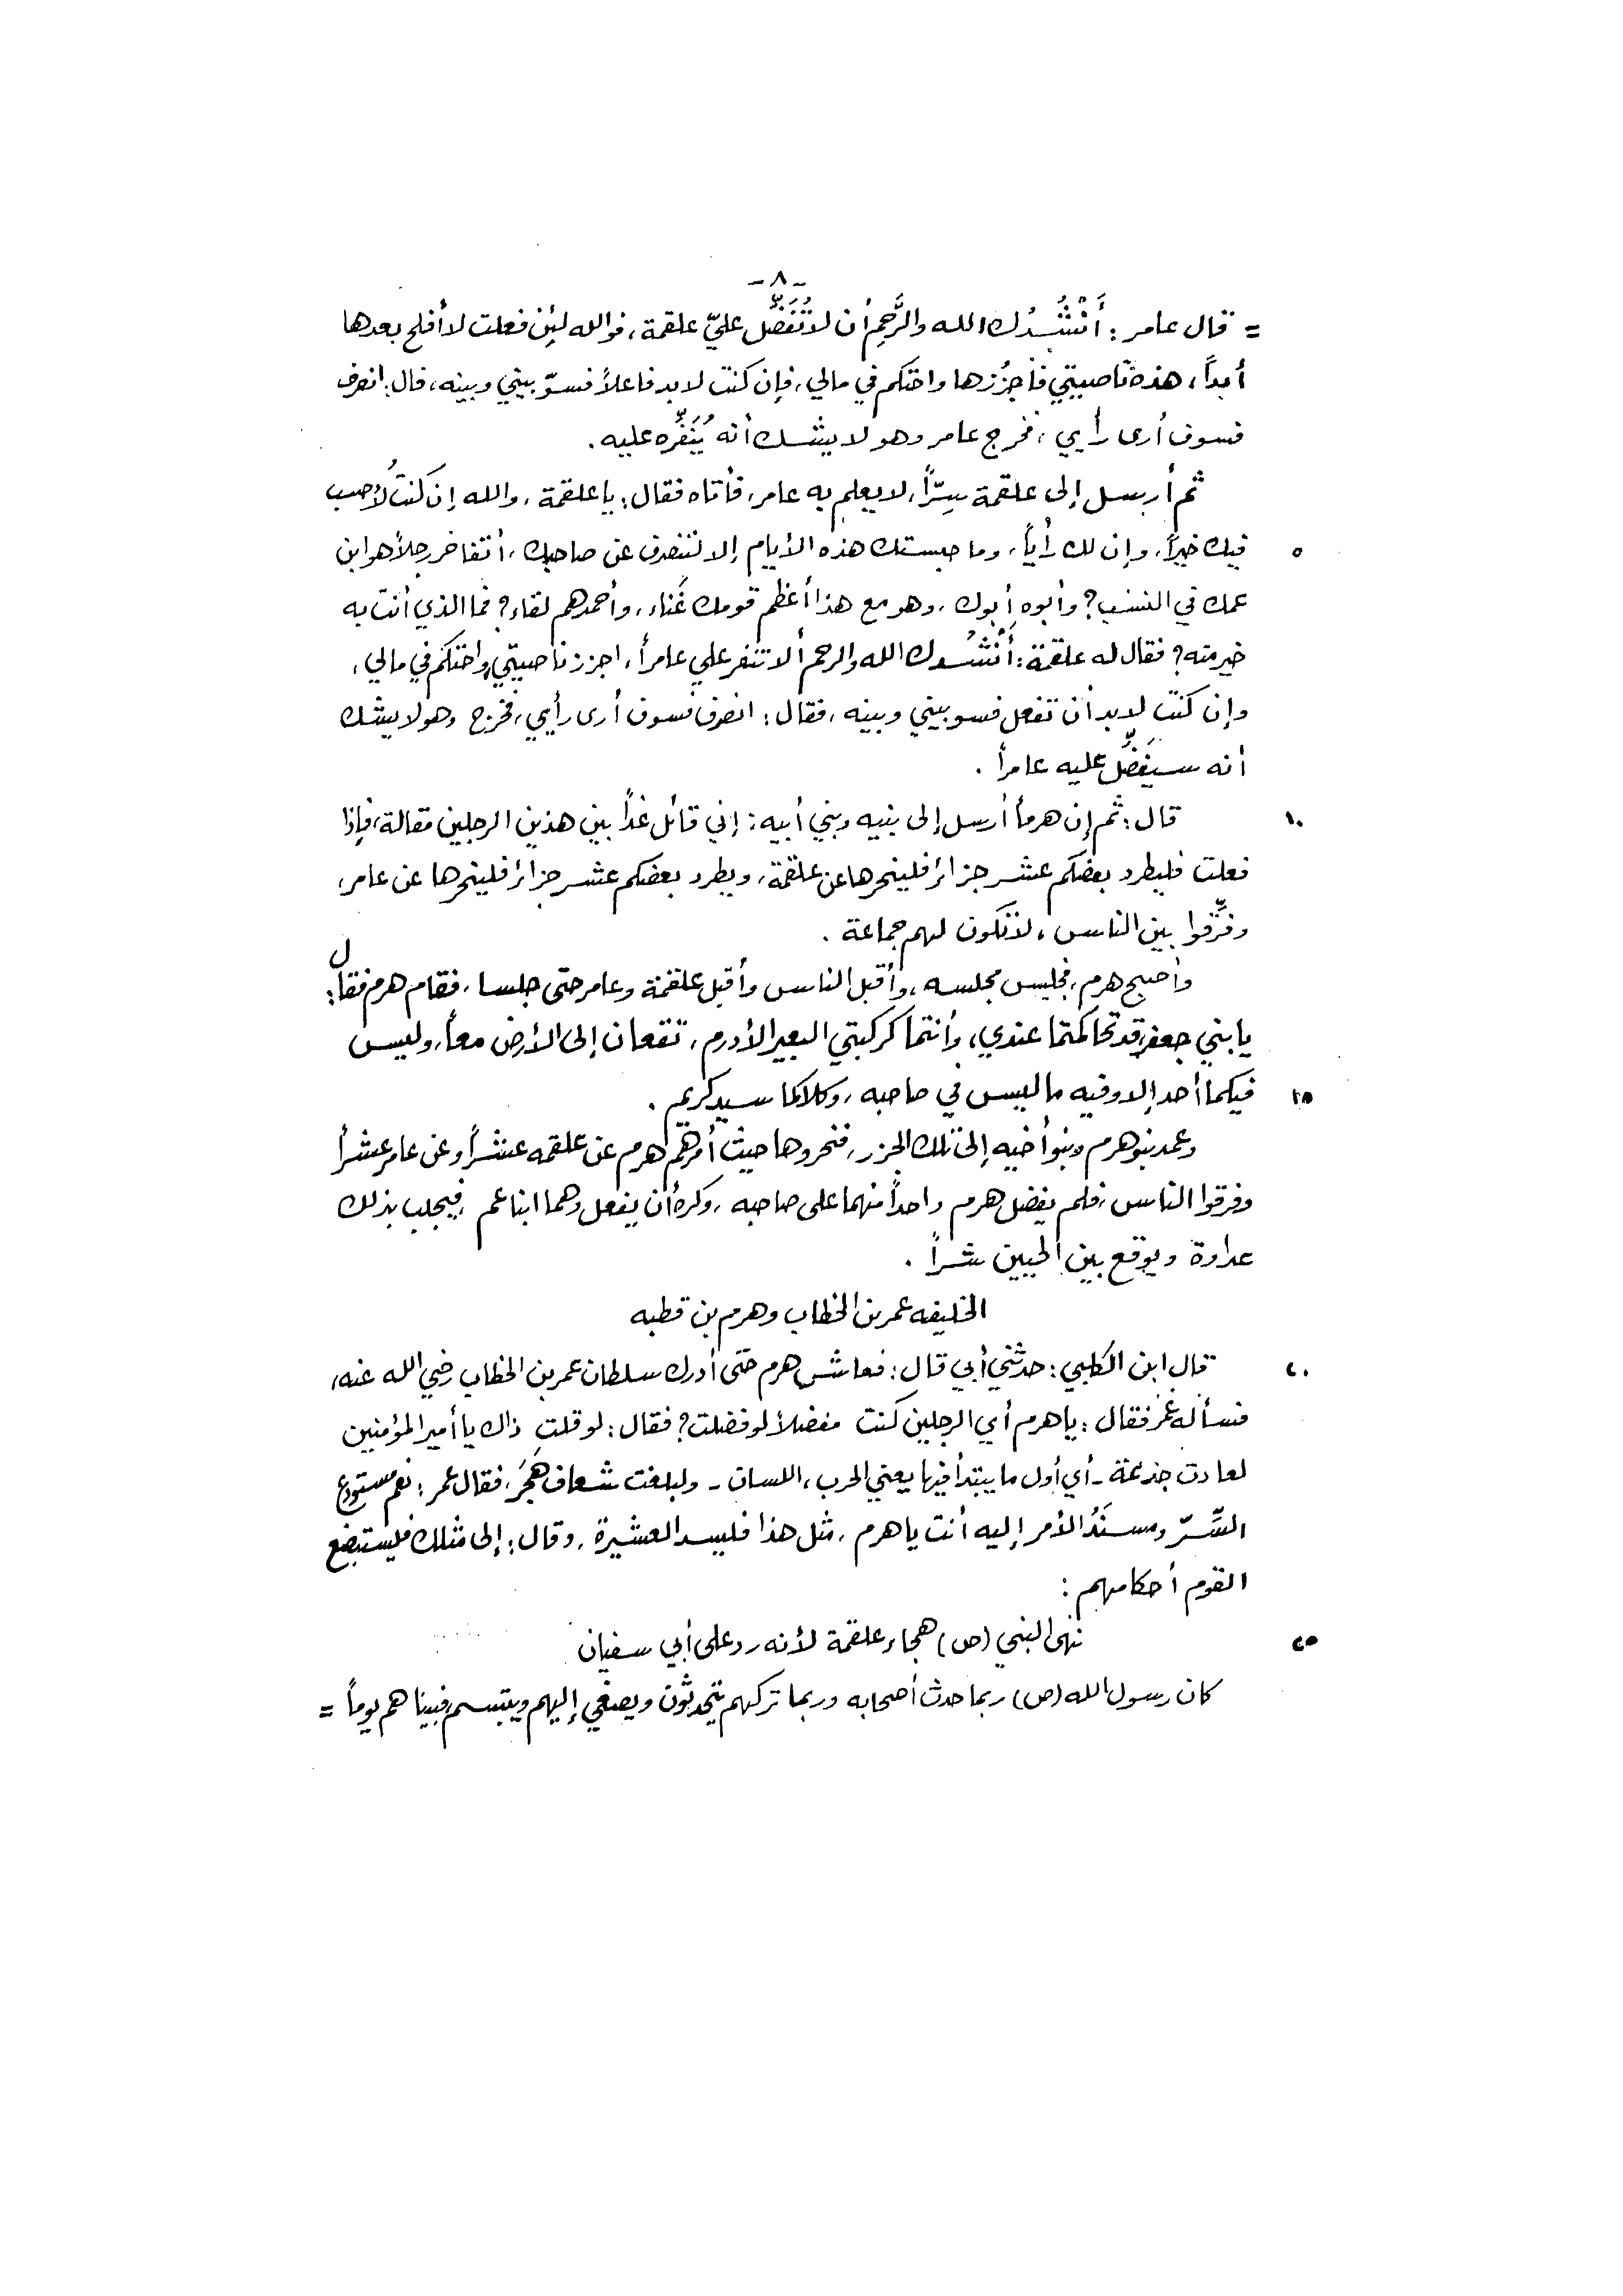 -٨-
= قال عامر : أَنْشُدُك الله والرَّحِم أن لا تُفَضِّل عليّ علقمة ، فوالله لئِن فعلت لا أفلح بعدها
أبداً ، هذه ناصيتي فأجزُزها واحتكم في مالي ، فإن كنت لابد فاعلاً فسوّ بيني وبينه ، قال : انصرف
فسوف أرى رأيي ، فخرج عامر وهو لا يشك أنه يُنَفِّره عليه .
ثم أرسل إلى علقمة سِرّاً ، لا يعلم به عامر ، فأتاه فقال : يا علقمة ، والله إن كنتُ لأحسب
٥ فيك خيراً ، وإن لك رأياً ، وما حبستك هذه الأيام إلا لتنصرف عن صاحبك ، أتفاخر رجلاً هو ابن
عمك في النسب ? وأبوه أبوك ، وهو مع هذا أعظم قومك غَناء ، وأحمدهم لقاء ? فما الذي أنت به
خير منه ? فقال له علقمة : أَنْشُدك الله والرحم ألا تنفر علي عامراً ، اجزز ناصيتي واحتكم في مالي ،
وإن كنت لابد أن تفعل فسو بيني وبينه ، فقال : انصرف فسوف أرى رأيي ، فخرج وهو لا يشك
أنه سيَفَضِّل عليه عامراً .
١٠ قال : ثم إن هرماً أرسل إلى بنيه وبني أبيه : إني قائل غداً بين هذين الرجلين مقالة ، فإذا
فعلت فليطرد بعضكم عشر جزائر فلينحرها عن علقمة ، ويطرد بعضكم عشر جزائر فلينحرها عن عامر ،
وفرِّقوا بين الناس ، لا تكون لهم جماعة .
وأصبح هرم ، فجلس مجلسه ، وأقبل الناس وأقبل علقمة وعامر حتى جلسا ، فقام هرم فقال :
يا بني جعفر قد تحاكمتما عندي ، وأنتما كركبتي البعير الأدرم ، تقعان إلى الأرض معاً ، وليس
١٥ فيكما أحد إلا وفيه ما ليس في صاحبه ، وكلاكما سيد كريم .
وعمد بنو هرم وبنو أخيه إلى تلك الجزر ، فنحروها حيث أمرهم هرم عن علقمه عشراً وعن عامر عشراً
وفرقوا الناس ، فلم يفضل هرم واحداً منهما على صاحبه ، وكره أن يفعل وهما ابنا عم ، فيجلب بذلك
عداوة ويوقع بين الحيين شراً .
الخليفه عمر بن الخطاب وهرم بن قطبه
٢٠ قال ابن الكلبي : حدثني أبي قال : فعاش هرم حتى أدرك سلطان عمر بن الخطاب رضي الله عنه ،
فسأله عمر فقال : يا هرم أي الرجلين كنت مفضلاً لو فضلت ? فقال : لو قلت ذاك يا أمير المؤمنين
لعادت جذعة - أي أول ما يبتدأ فيها يعني الحرب ، اللسان - ولبلغت شعاف هَجَرَ ، فقال عمر : نعم مستودع
السِّرّ ومسنَدُ الأمر إليه أنت يا هرم ، مثل هذا فليسد العشيرة ، وقال : إلى مثلك فليستبضع
القوم أحكامهم :
٢٥ نهى النبي (ص) هجاء علقمة لأنه رد على أبي سفيان
كان رسول الله (ص) ربما حدث أصحابه وربما تركهم يتحدثون ويصغي إليهم ويتبسم فبينا هم يوماً =